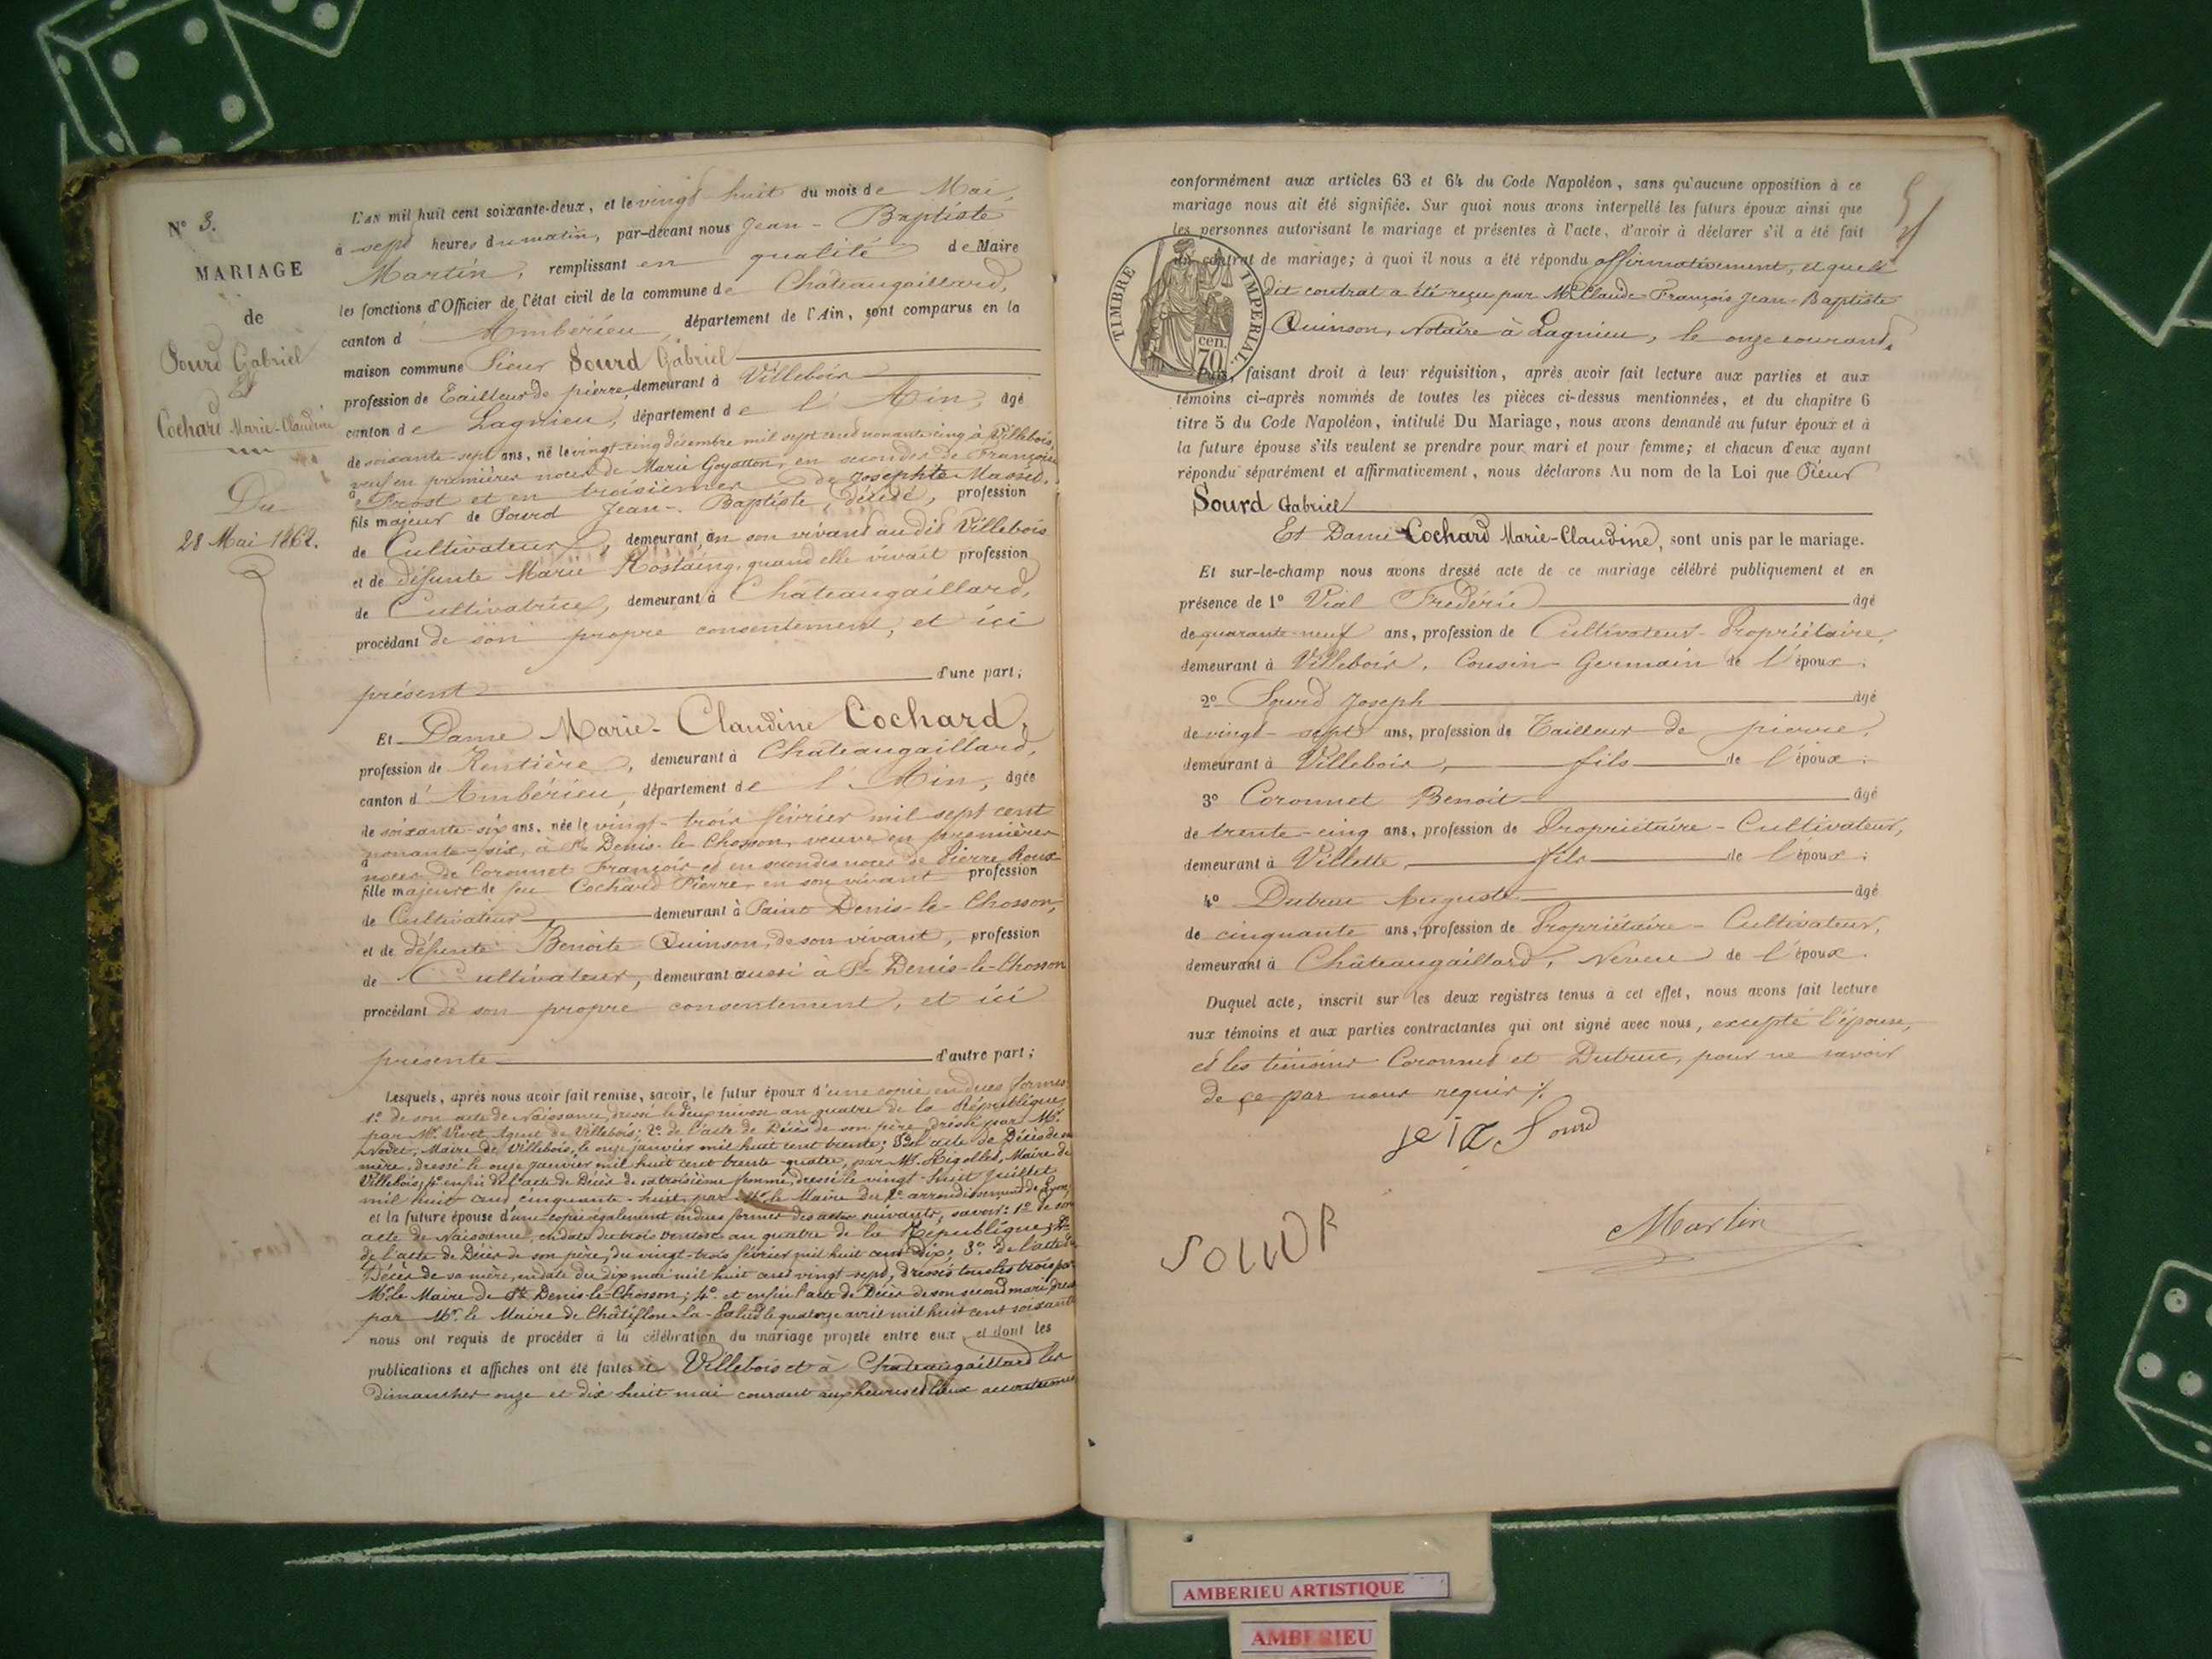 N° 3.
MARIAGE
de
Sourd Gabriel
Et
Cochard Marie-Claudine
Du
28 Mai 1862.
L'an mil huit cent soixante-deux, et le vingt-huit du mois de Mai,
à sept heures du matin, par-devant nous Jean-Baptiste
Martin, remplissant en qualité de Maire
les fonctions d'Officier de l'état civil de la commune de Chateaugaillard,
canton d'Ambérieu, département de l'Ain, sont comparus en la
maison commune Sieur Sourd Gabriel
profession de Tailleur de pierre, demeurant à Villebois
canton de Lagnieu, département de l'Ain, âgé
de soixante-sept ans, né le vingt-cinq décembre mil sept cent nonante cinq à Villebois,
veuf en premières noces de Marie Goyatton, en secondes de Françoise
Prost et en troisièmes de Josephte Massed.
fils majeur de Sourd Jean-Baptiste, décédé, profession
de Cultivateur, demeurant, en son vivant audit Villebois
et de défunte Marie Rostaing, quand elle vivait profession
de Cultivatrice, demeurant à Châteaugaillard,
procédant de son propre consentement, et ici
présent d'une part;
Et Dame Marie-Claudine Cochard,
profession de Rentière, demeurant à Châteaugaillard,
canton d'Ambérieu, département de l'Ain, âgée
de soixante-six ans, née le vingt-trois février mil sept cent
nonante-six, à St Denis-le-Chosson, veuve en premières
noces de Coronnet François et en secondes noces de Pierre Roux
fille majeure de feu Cochard Pierre, en son vivant profession
de Cultivateur demeurant à Saint Denis-le-Chosson,
et de défunte Benoite Quinson, de son vivant, profession
de Cultivateur, demeurant aussi à St Denis-le-Chosson
procédant de son propre consentement, et ici
présente d'autre part;
Lesquels, après nous avoir fait remise, savoir, le futur époux d'une copie en dues formes,
1° de son acte de Naissance dressé le deux nivose an quatre de la République,
par Mr Vivet Agent de Villebois; 2° de l'acte de Décès de son père, dressé par Mr
Nodet, Maire de Villebois, le onze janvier mil huit cent trente; 3° l'acte de Décès de sa
mère, dressé le onze janvier mil huit cent trente-quatre, par Mr Rigollet, Maire de
Villebois; 4° enfin de l'acte de Décès de sa troisième femme, dressé le vingt-huit Juillet
mil huit cent cinquante-huit, par Mr le Maire du 2e arrondissement de Lyon;
et la future épouse d'une copie également en dues formes des actes suivants, savoir: 1° de son
acte de Naissance, en date du trois ventose an quatre de la République; 2°
de l'acte de Décès de son père, du vingt-trois février mil huit cent dix; 3° de l'acte de
Décès de sa mère, en date du dix mai mil huit cent vingt-sept, dressés tous les trois par
Mr le Maire de St Denis-le-Chosson; 4° et enfin l'acte de Décès de son second mari dressé
par Mr le Maire de Châtillon-la-Palud le quatorze avril mil huit cent soixante
nous ont requis de procéder à la célébration du mariage projeté entre eux, et dont les
publications et affiches ont été faites à Villebois et à Chateaugaillard les
dimanches onze et dix huit mai courant aux heures et lieux accoutumés
conformément aux articles 63 et 64 du Code Napoléon, sans qu'aucune opposition à ce
mariage nous ait été signifiée. Sur quoi nous avons interpellé les futurs époux ainsi que
les personnes autorisant le mariage et présentes à l'acte, d'avoir à déclarer s'il a été fait
un contrat de mariage; à quoi il nous a été répondu affirmativement, et que le
dit contrat a été reçu par Me Claude-François Jean-Baptiste
Quinson, Notaire à Lagnieu, le onze courant.
TIMBRE IMPERIAL
cen. 70
faisant droit à leur réquisition, après avoir fait lecture aux parties et aux
témoins ci-après nommés de toutes les pièces ci-dessus mentionnées, et du chapitre 6
titre 5 du Code Napoléon, intitulé Du Mariage, nous avons demandé au futur époux et à
la future épouse s'ils veulent se prendre pour mari et pour femme; et chacun d'eux ayant
répondu séparément et affirmativement, nous déclarons Au nom de la Loi que Sieur
Sourd Gabriel
Et Dame Cochard Marie-Claudine, sont unis par le mariage.
Et sur-le-champ nous avons dressé acte de ce mariage célébré publiquement et en
présence de 1° Vial Frédéric âgé
de quarante-neuf ans, profession de Cultivateur-Propriétaire,
demeurant à Villebois, Cousin-Germain de l'époux;
2° Sourd Joseph âgé
de vingt-sept ans, profession de Tailleur de pierre,
demeurant à Villebois, fils de l'époux;
3° Coronnet Benoit âgé
de trente-cinq ans, profession de Propriétaire-Cultivateur,
demeurant à Villette, fils de l'époux;
4° Dutruc Auguste âgé
de cinquante ans, profession de Propriétaire-Cultivateur,
demeurant à Châteaugaillard, Neveu de l'époux.
Duquel acte, inscrit sur les deux registres tenus à cet effet, nous avons fait lecture
aux témoins et aux parties contractantes qui ont signé avec nous, excepté l'épouse,
et les témoins Coronnet et Dutruc, pour ne savoir
de ce par nous requis ./.
Sourd
Martin
AMBERIEU ARTISTIQUE
AMBERIEU